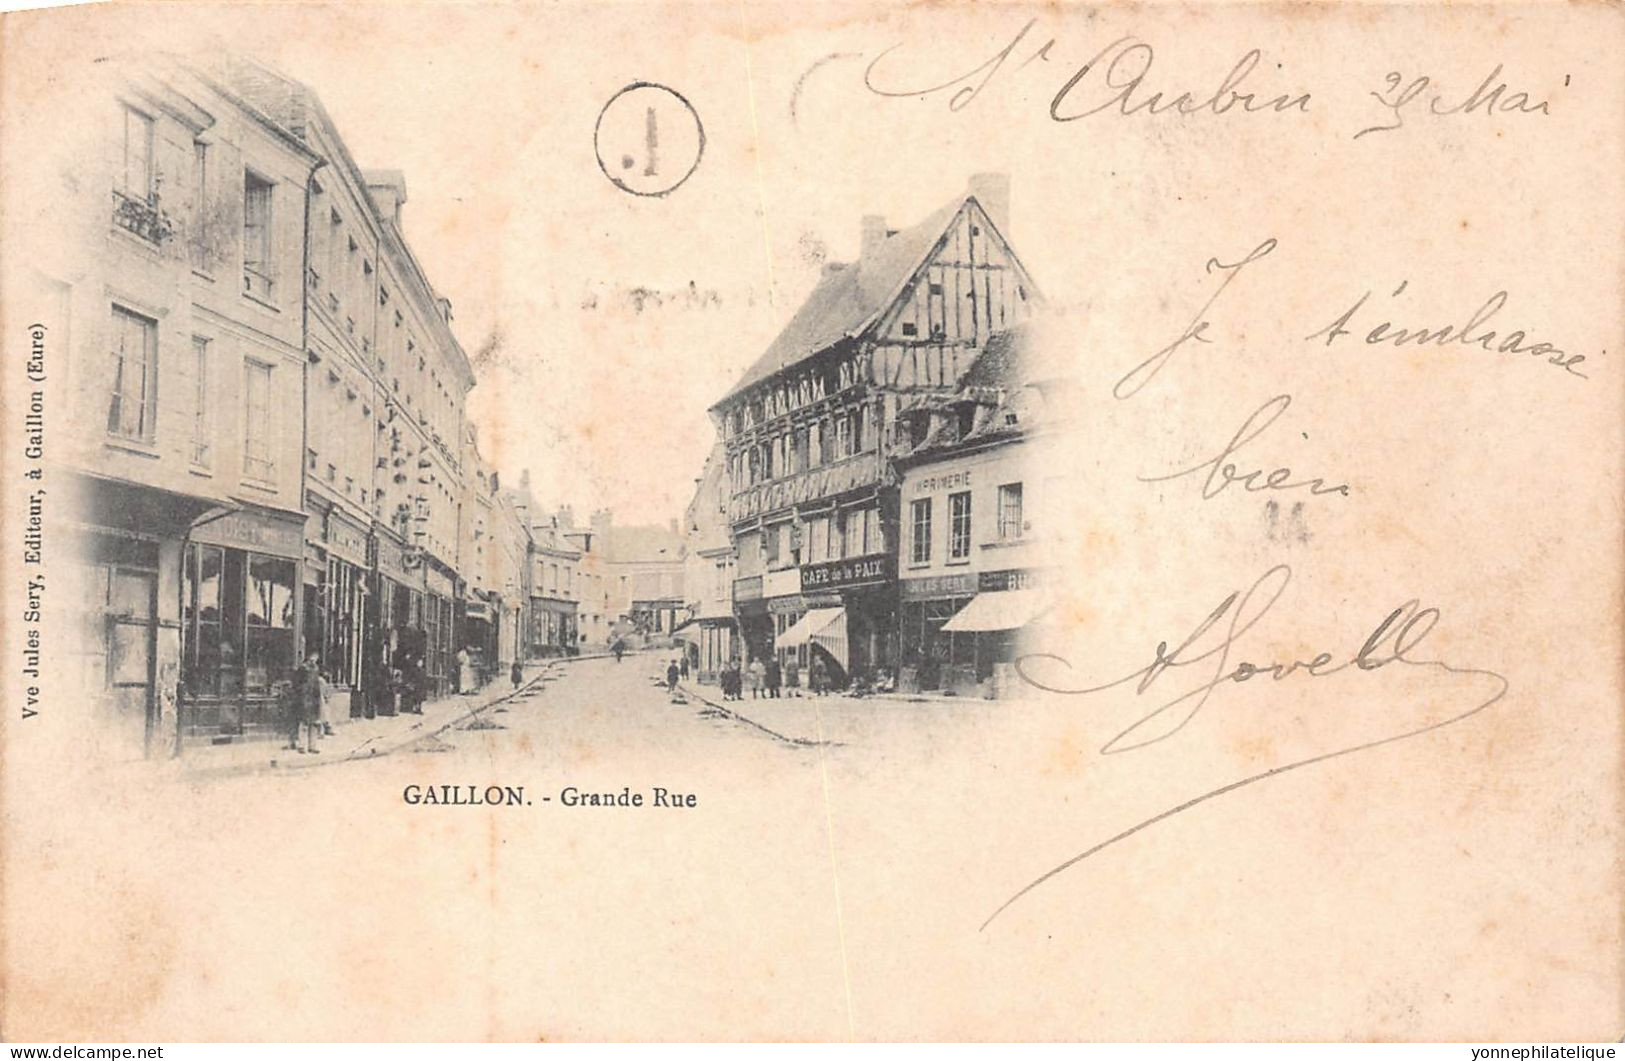 St Aubin 25 Mai
Je t'embrasse
bien
Vve Jules Sery, Editeur, à Gaillon (Eure)
1.
IMPRIMERIE
CAFE de la PAIX
JULES SERY
14
GAILLON. - Grande Rue
delcampe.net
yonnephilatelique